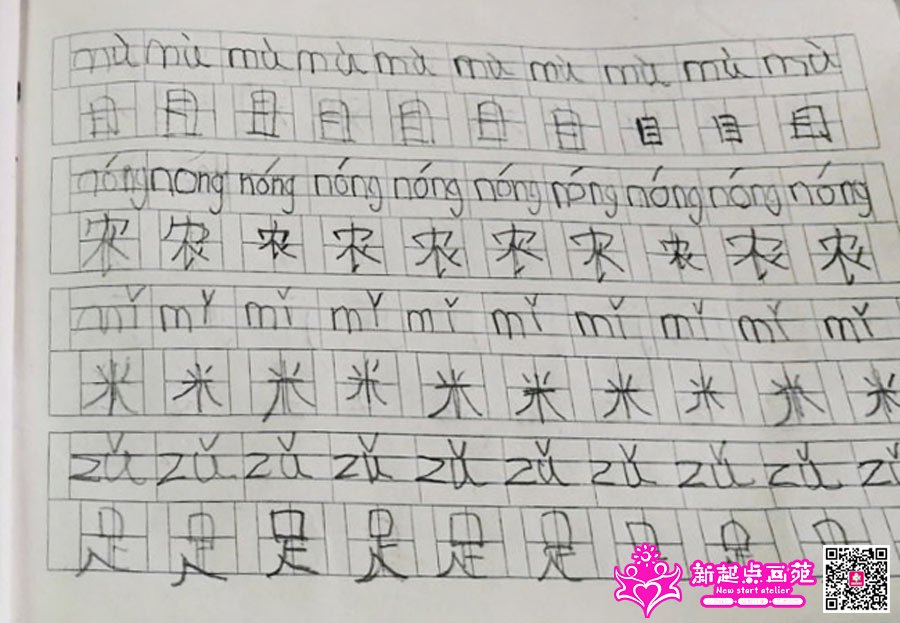 mù mù mù mù mù mù mù mù mù mù
目 目 目 目 目 目 目 目 目 目
nóng nong nóng nóng nóng nóng nóng nóng nóng nóng
农 农 农 农 农 农 农 农 农 农
mǐ mǐ mǐ mǐ mǐ mǐ mǐ mǐ mǐ mǐ
米 米 米 米 米 米 米 米 米 米
zǔ zǔ zǔ zǔ zǔ zǔ zǔ zǔ zǔ zǔ
足 足 足 足 足 足 足 足 足
新起点画苑
New start atelier